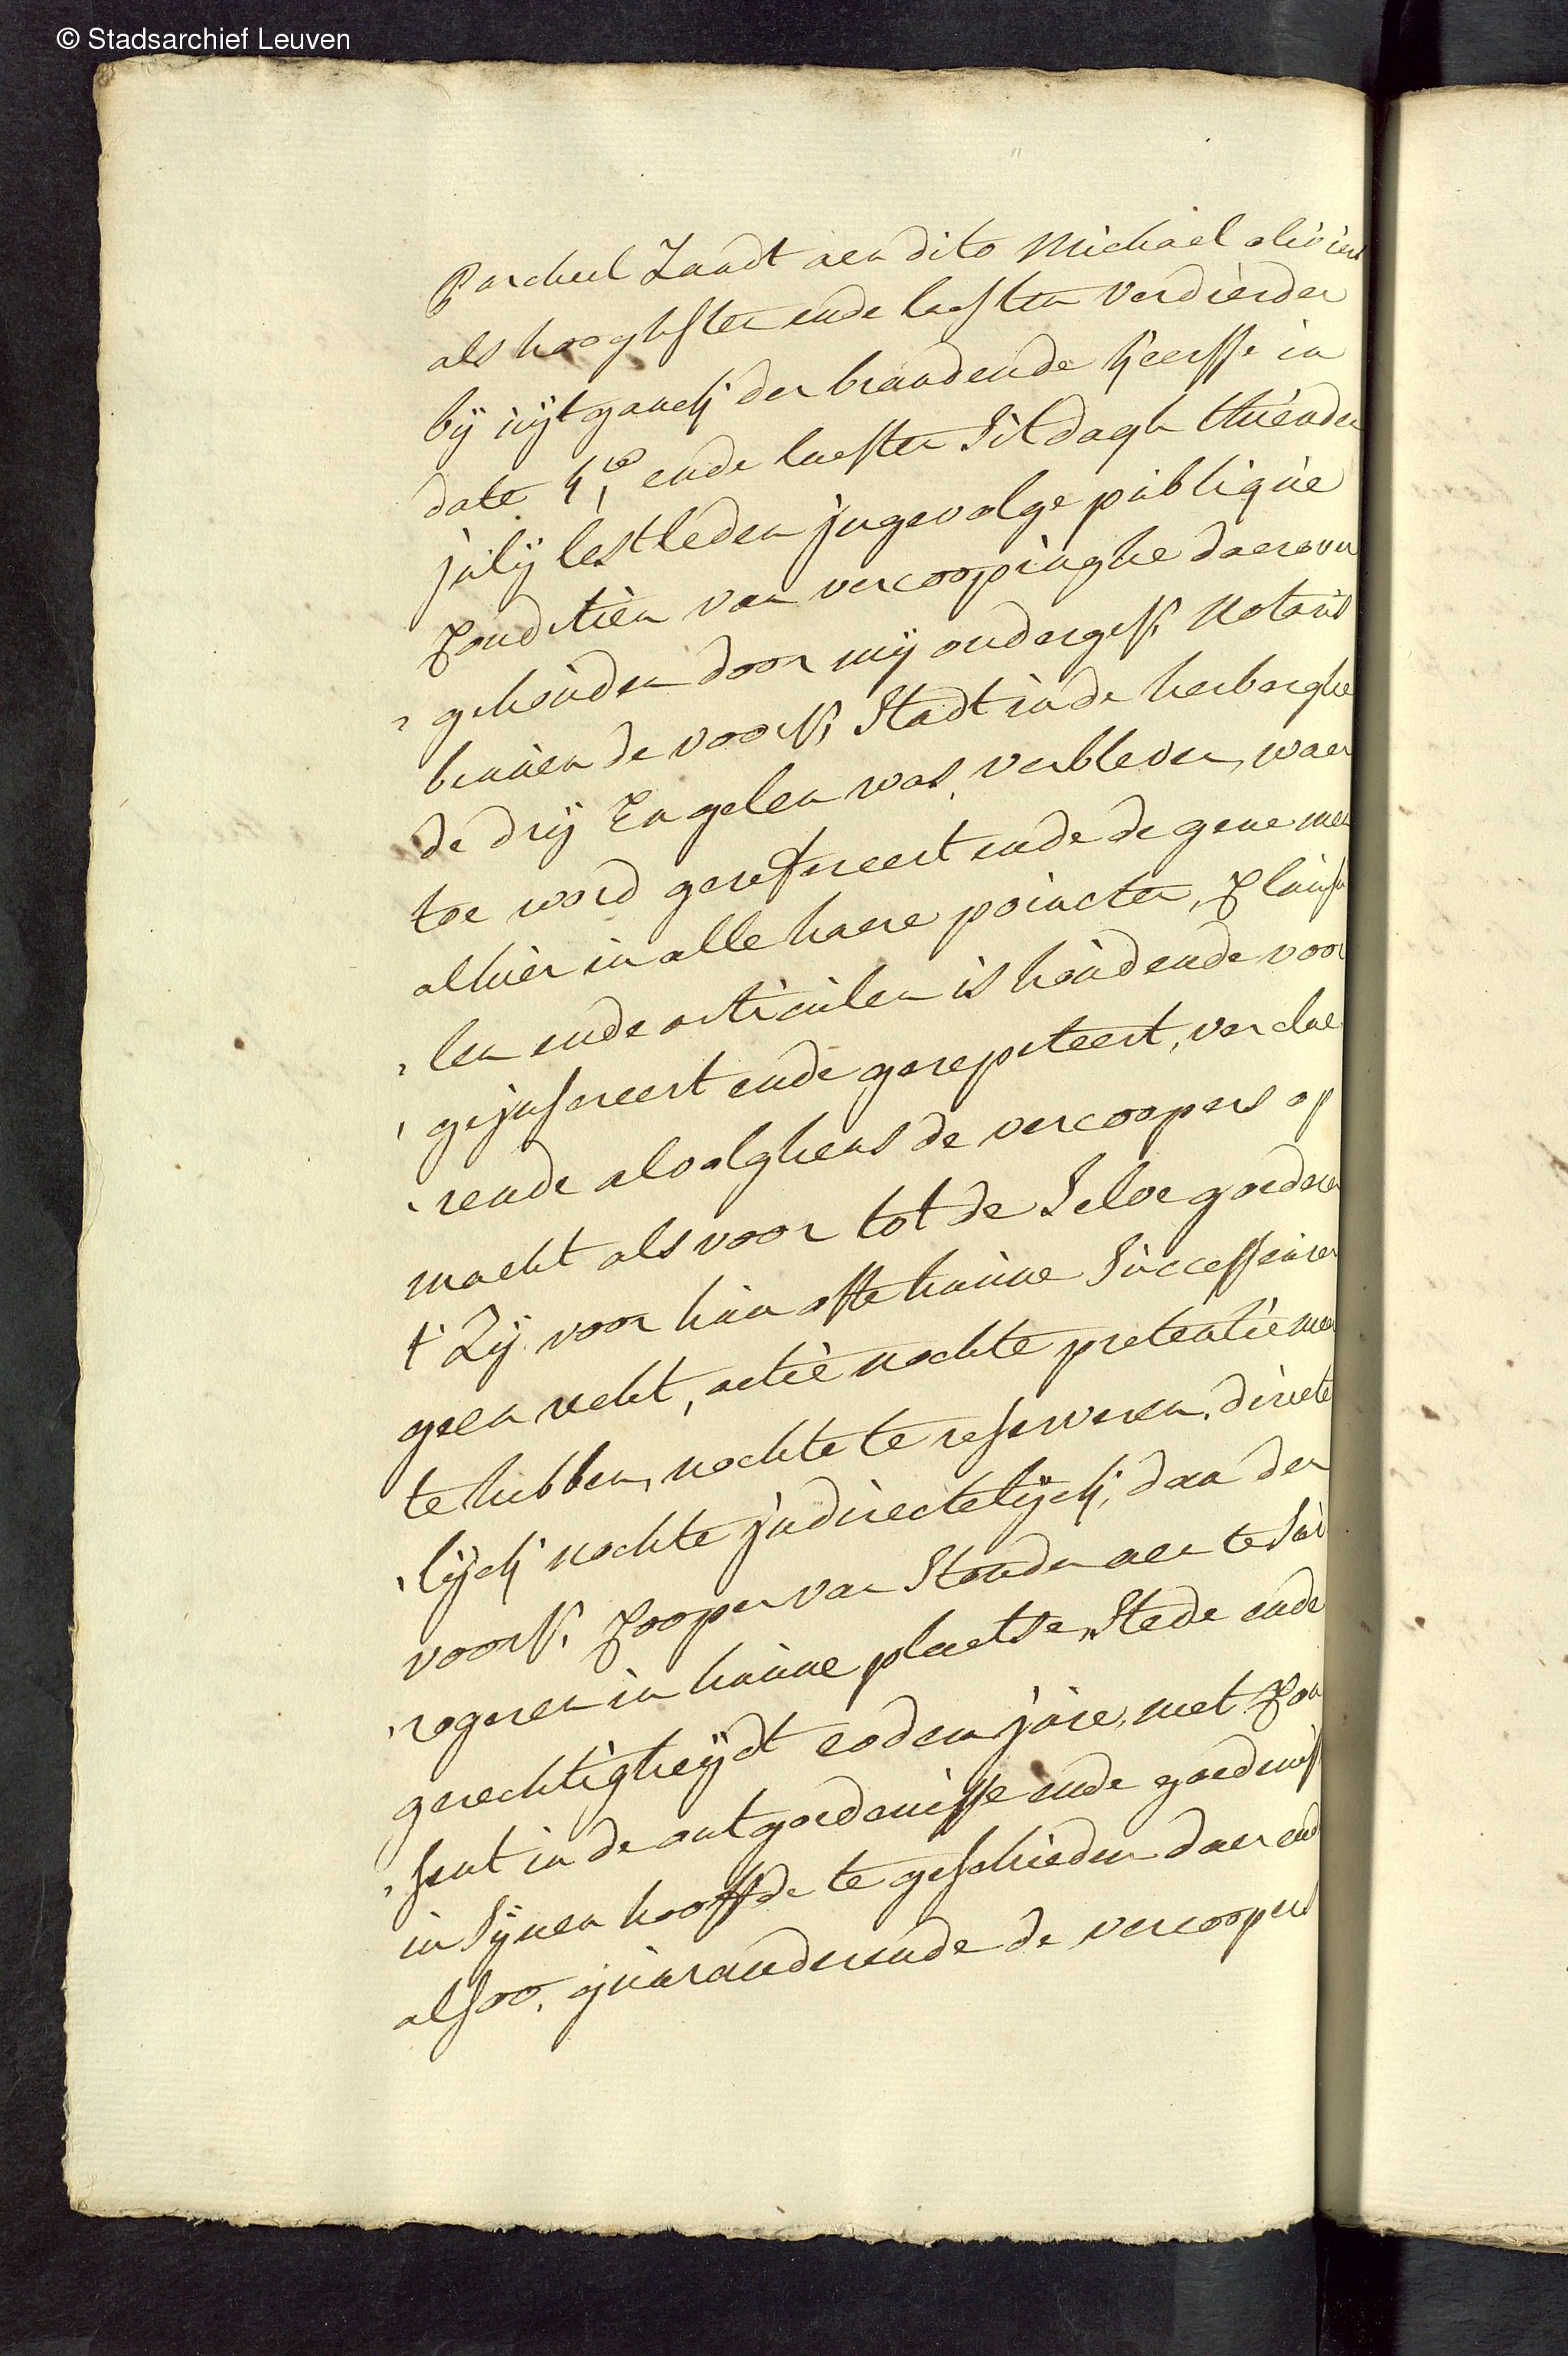 © Stadsarchief Leuven
Parcheel Landt aen dito Michael oliviers
als hooghsten ende lesten verdierder
bij uÿtganck der brandende keersse in
date 4.en ende laesten Sitdagh thienden
julÿ lestleden jngevolge publique
Conditien van vercoopinghe daerover
gehouden door mÿ onderges. Notaris
binnen de voors. Stadt inde herberghe
de drÿ Engelen was verbleven, waer
toe word gerefereert ende de gene men
alhier in alle haere poincten, Clausu
len ende articulen is houdende voor
gejnsereert ende gerepeteert, verclae
rende alvolghens de vercoopers op
macht als voor tot de Selve goederen
t' Zÿ voor hun ofte hunne Successeuren
geen recht, actie nochte pretentie meer
te hebben, nochte te reserveren, directe
lÿck nochte jndirectelÿck, dan den
voors. Cooper van Stonden aen te Sub
rogeren in hunne plaetse, Stede ende
gerechtigheÿdt eodem jure, met Con
sent in de ontgoedenisse ende goedeniss
in Sÿnen hooffde te geschieden daer ende
alsoo, guaranderende de vercoopers